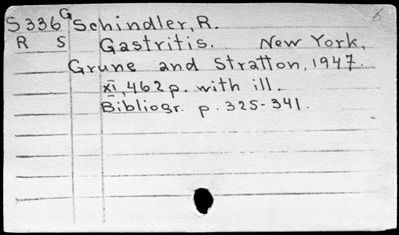 S336 G Schindler, R.
R S Gastritis. New York,
Grune and Stratton, 1947.
XI, 462 p. with ill.
Bibliogr. p. 325-341.